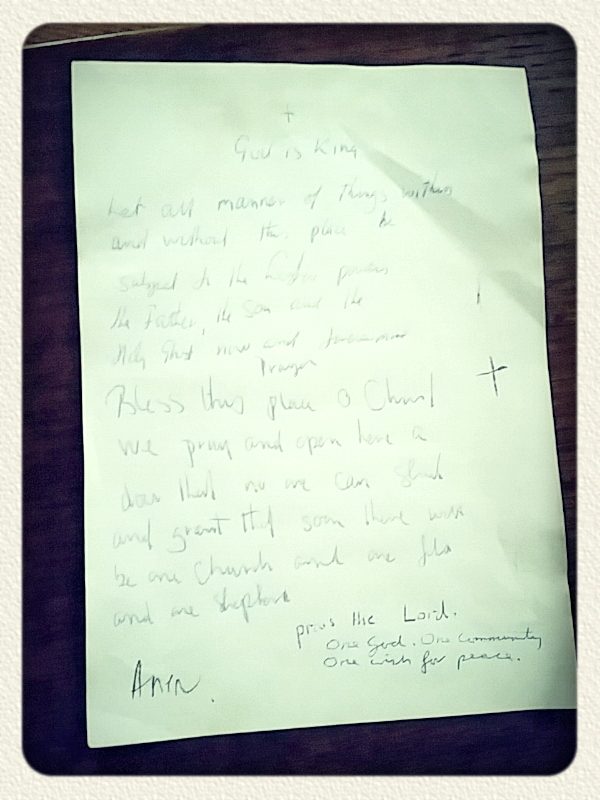 God is King
Let all manner of things within
and without this place be
subject to the powers
the Father, the Son and the
Holy Ghost now and forevermore
Prayer
Bless this place O Christ
we pray and open here a
door that no one can shut
and grant that soon there will
be one Church and one
and one
the Lord.
One God. One Community
One wish for peace.
Amen